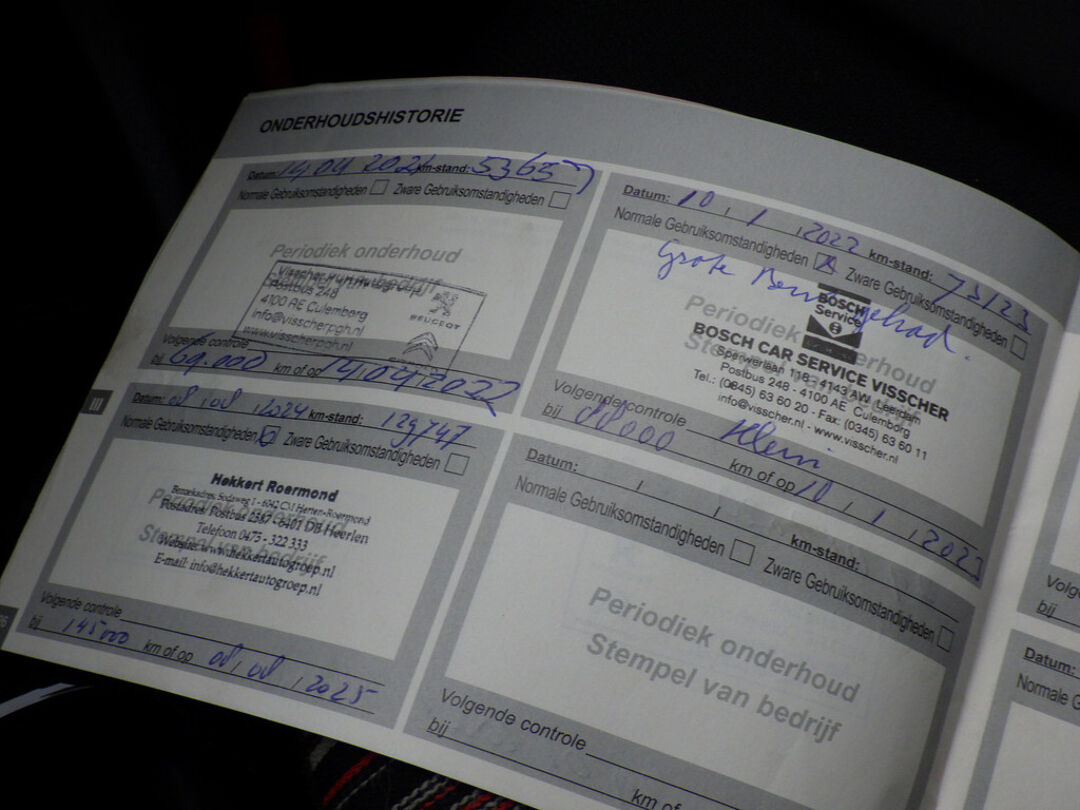 ONDERHOUDSHISTORIE
Datum: 14 04 2021 km-stand: 53657
Normale Gebruiksomstandigheden Zware Gebruiksomstandigheden
Periodiek onderhoud
Postbus 248
4100 AE Culemborg
info@visscherpgh.nl
www.visscherpgh.nl
PEUGEOT
Volgende controle
bij 69.000 km of op 14 04 2022
Datum: 10 , 1 , 2022 km-stand: 73123
Normale Gebruiksomstandigheden Zware Gebruiksomstandigheden
Grote Beurt gehad.
Periodiek onderhoud
BOSCH
Service
BOSCH CAR SERVICE VISSCHER
Sperwerlaan 118 - 4143 AW Leerdam
Postbus 248 - 4100 AE Culemborg
Tel.: (0345) 63 60 20 - Fax: (0345) 63 60 11
info@visscher.nl - www.visscher.nl
Volgende controle Klein
bij 88000 km of op 10 , 1 , 2023
III
Datum: 08 , 08 , 2024 km-stand: 129747
Normale Gebruiksomstandigheden Zware Gebruiksomstandigheden
Hekkert Roermond
Periodiek onderhoud
Postadres: Postbus 2567 - 6401 DB Heerlen
Telefoon 0475 - 322 333
Stempel van bedrijf
Website: www.hekkertautogroep.nl
E-mail: info@hekkertautogroep.nl
Volgende controle
bij 145000 km of op 08 , 08 , 2025
Datum: , ,
km-stand:
Normale Gebruiksomstandigheden Zware Gebruiksomstandigheden
Periodiek onderhoud
Stempel van bedrijf
Volgende controle
bij km of
Volge
bij
Datum:
Normale G